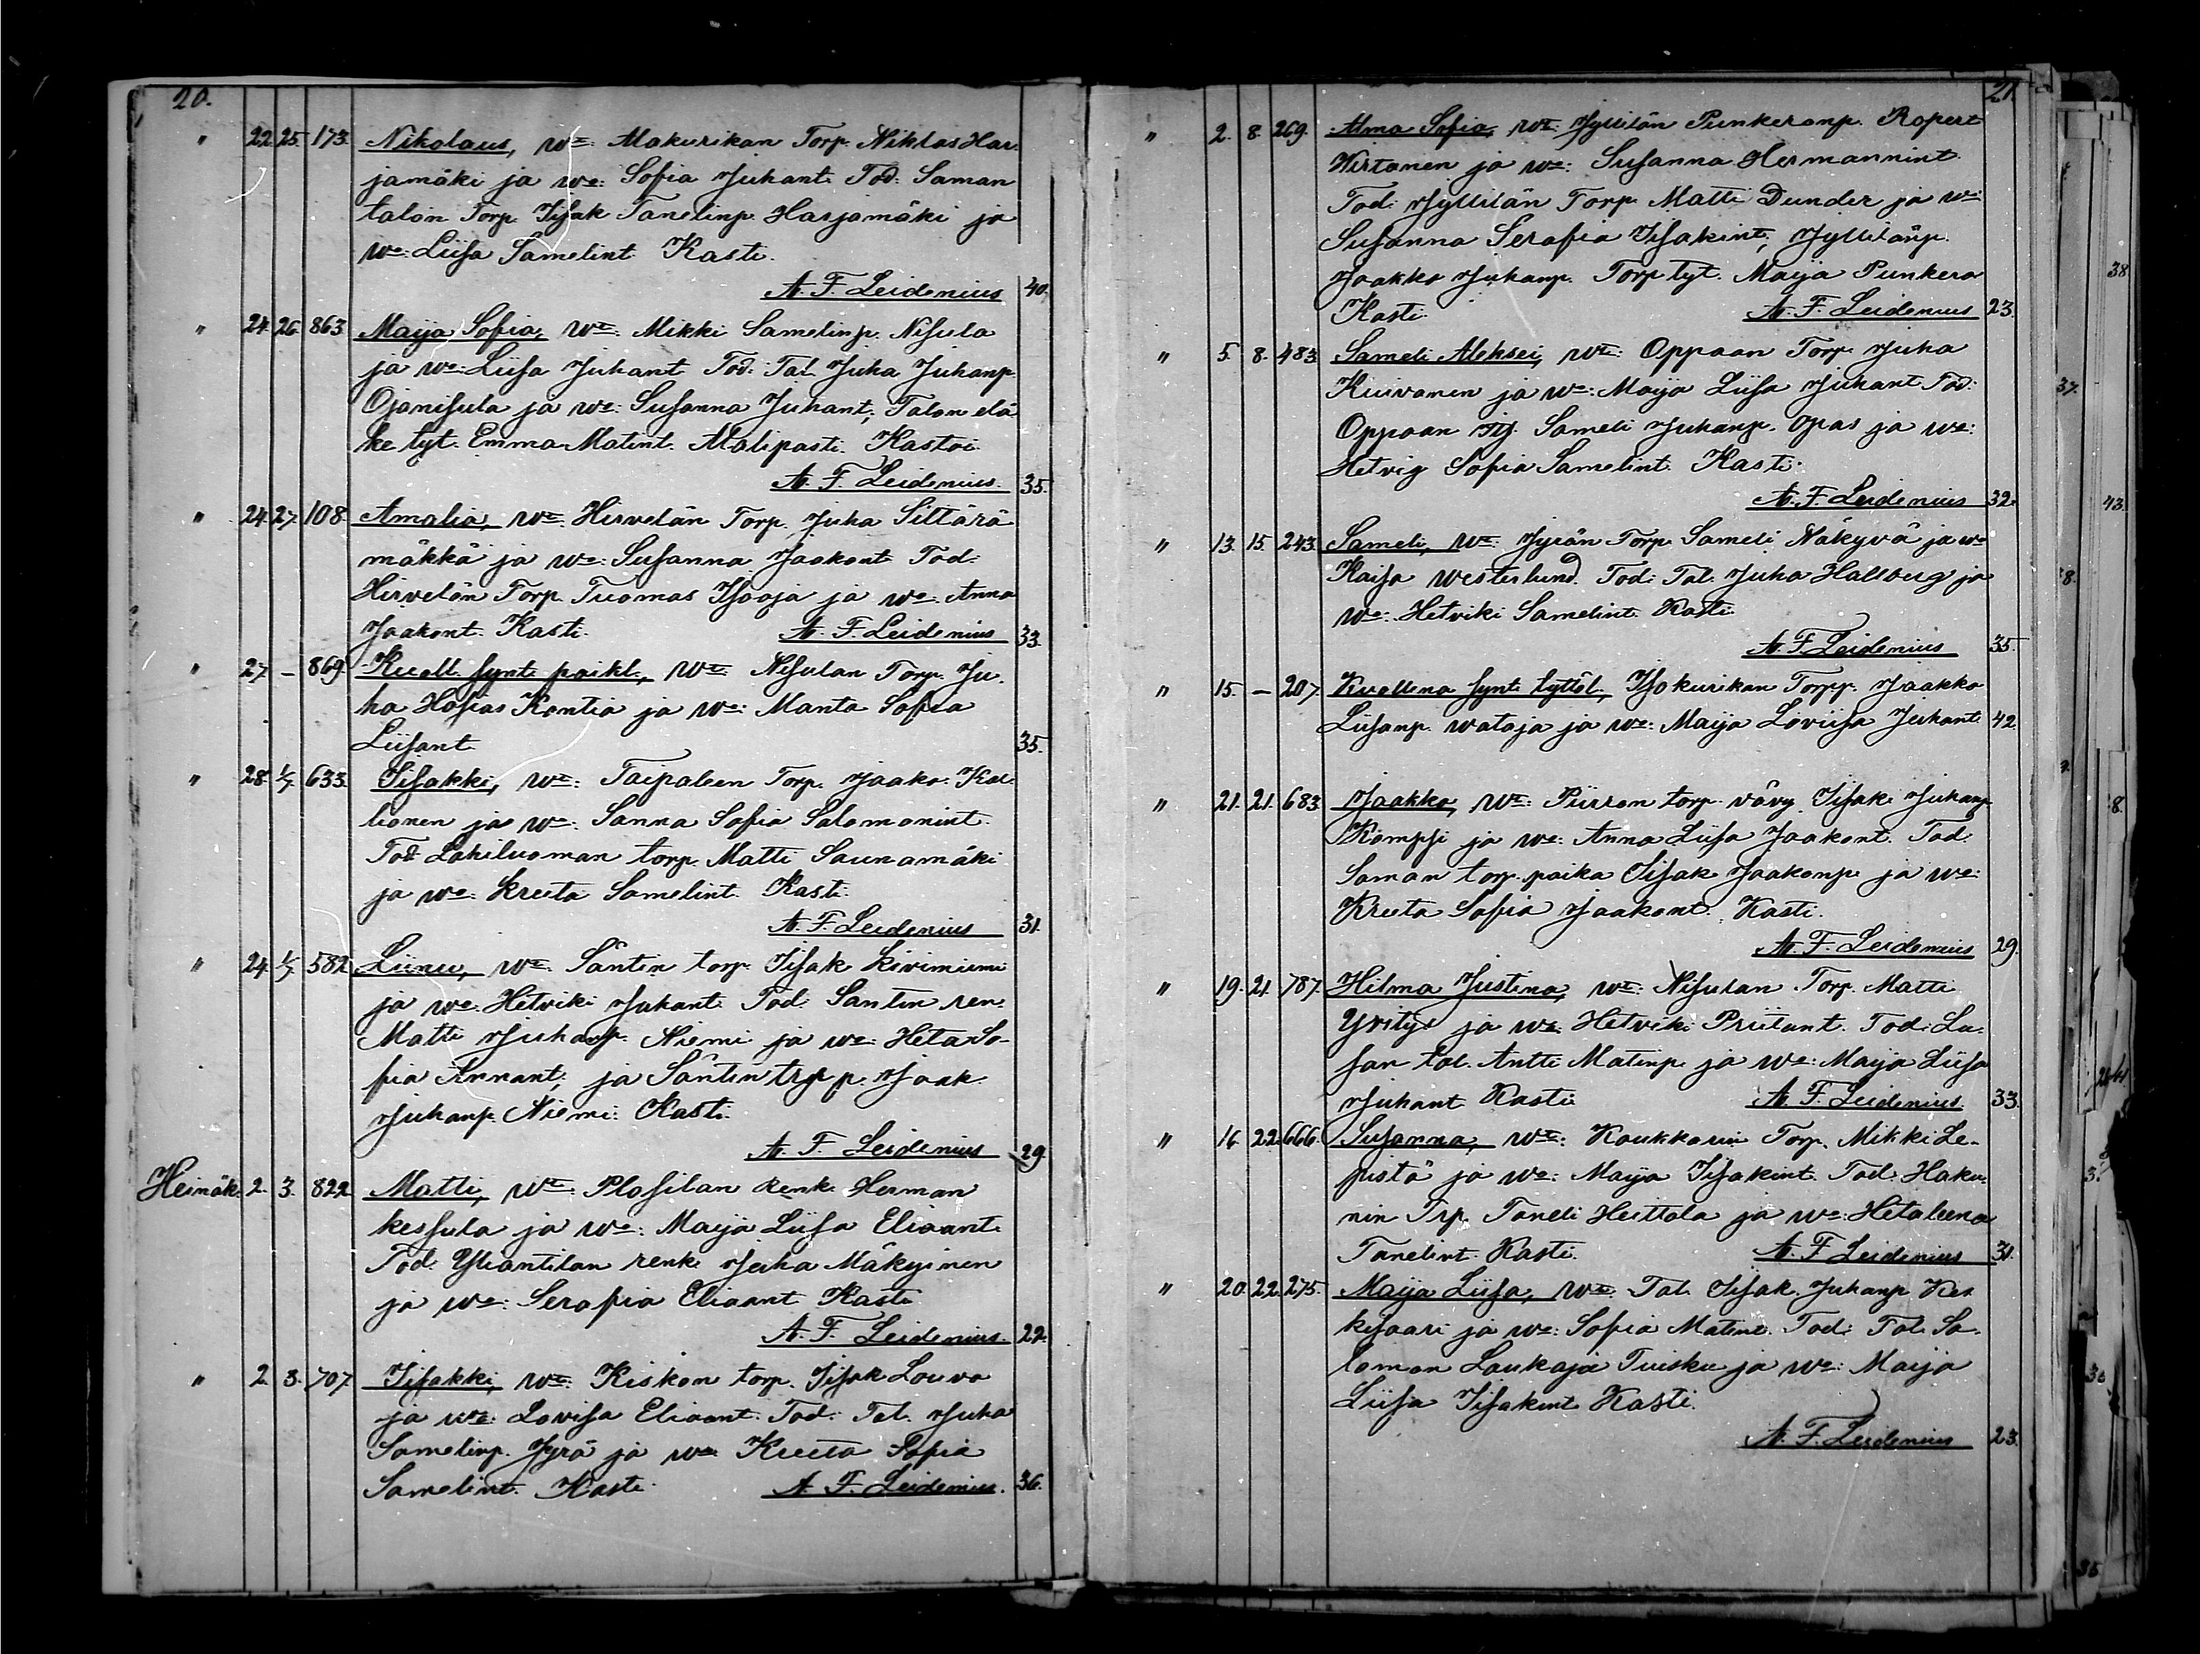 20.
" 22. 25. 173. Nikolaus, Wmt: Makurikan Torp. Niklas Har-
jamäki ja wo: Sofia Juhant. Tod: Saman
talon Torp. Iisak Tanelinp. Harjamäki ja
wo: Liisa Samelint. Kasti.
A. F. Leidenius 40.
" 24. 26. 863. Maija Sofia, Wmt: Mikki Samelinp. Nisula
ja wo: Liisa Juhant Tod: Tal. Juha Juhanp.
Ojanisula ja wo: Susanna Juhant; Talon elä
ke tyt. Emma Matint. Malipasti. Kastoi
A. F. Leidenius. 35.
" 24. 27. 108. Amalia, Wmt. Hirvelän Torp. Juha Siltärä
mäkkä ja wo: Susanna Jaakont Tod:
Hirvelän Torp. Tuomas Isooja ja wo: Anna
Jaakont. Kasti. A. F. Leidenius 33.
" 27. – 869. Kuoll. synt. poikl., Wmt Nisulan Torp. Ju-
ha Hosias Rentia ja wo: Manta Sofia
Liisant. 35.
" 28. 1/7. 633. Iisakki, wmt: Taipaleen Torp. Jaako Kal-
lionen ja wo: Sanna Sofia Salomonint.
Tod Lahiluoman torp. Matti Saunamäki
ja wo: Kreeta Samelint. Kasti.
A. F. Leidenius 31.
" 24. 1/7. 582. Liinu, wmt. Säntin torp. Iisak Kiviniemi
ja wo: Hetviki Juhant. Tod Santin ren.
Matti Juhanp. Niemi ja wo: Heta So-
fia Annant; ja Säntin trp p. Jaak.
Juhanp. Niemi. Kasti.
A. F. Leidenius 29.
Heinäk. 2. 3. 822. Matti, Wmt: Plosilan Renk. Herman
kessula ja wo: Maija Liisa Eliaant.
Tod. Yliantilan renk. Juha Mäkyinen
ja wo: Serafia Eliaant Kasti
A. F. Leidenius. 22.
" 2. 3. 707. Iisakki, Wmt: Kiskon torp. Iisak Louva
ja wo: Lovisa Eliaant. Tod: Tal. Juha
Samelinp. Jyrä ja wo: Kreeta Sofia
Samelint. Kasti. A. F. Leidenius. 36.
21.
" 2. 8. 269. Alma Sofia, Wmt: Jyllilän Punkeranp. Ropert
Wirtanen ja wo: Susanna Hermannint.
Tod: Jyllilän Torp. Matti Dunder ja wo:
Susanna Serafia Iisakint; Jyllilänp.
Jaakko Juhanp. Torp tyt. Maija Punkera
Kasti. A. F. Leidenius 23.
" 5. 8. 483. Sameli Aleksei, wmt: Oppaan Torp. Juha
Kiuvanen ja wo: Maija Liisa Juhant Tod:
Oppaan Itj. Sameli Juhanp. Opas ja wo:
Hetvig Sofia Samelint. Kasti.
A. F. Leidenius 32.
" 13. 15. 243. Sameli, wmt: Jyrän Torp. Sameli Näkyvä ja wo
Kaisa Westerlund. Tod: Tal. Juha Hallberg ja
wo: Hetviki Samelint. Kasti.
A. F. Leidenius 35.
" 15. – 207. Kuollena synt. tyttöl., Isokurikan Torpp. Jaakko
Liisanp. Wataja ja wo: Maija Loviisa Juhant. 42
" 21. 21. 683. Jaakko, wmt: Piirron torp. vävy Iisak Juhanp.
Kömpsi ja wo: Anna Liisa Jaakont. Tod.
Saman torp. poika Iisak Jaakonp. ja wo:
Kreeta Sofia Jaakont. Kasti.
A. F. Leidenius 29.
" 19. 21. 787. Hilma Justina, wmt: Nisulan Torp. Matti
Yritys ja wo: Hetviki Priitant. Tod: La-
san tal. Antti Matinp. ja wo: Maija Liisa
Juhant Kasti A. F. Leidenius 33.
" 16. 22. 666. Susanna, wmt: Koukkarin Torp. Mikki Le-
pistö ja wo: Maija Iisakint. Tod: Haku-
nin Trp. Taneli Heittola ja wo: Hetaleena
Tanelint. Kasti. A. F. Leidenius 31.
" 20. 22. 275. Maija Liisa, Wmt. Tal. Iisak Juhanp Kes
kisaari ja wo: Sofia Matint. Tod: Tal. Sa-
lomon Laukaja Tuisku ja wo: Maija
Liisa Iisakint Kasti.
A. F. Leidenius 23.